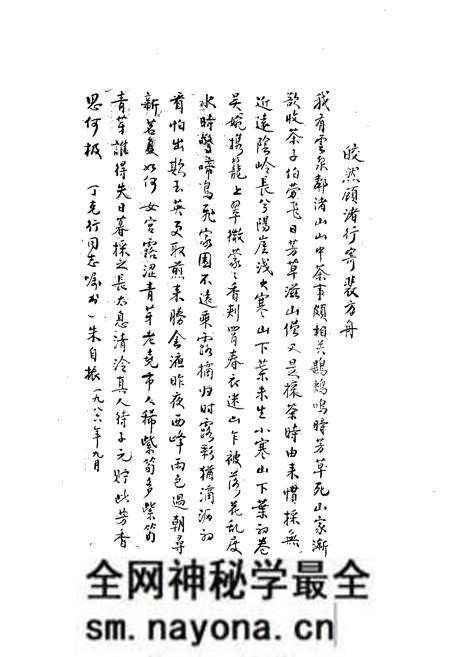 皎然顾渚行寄裴方舟
我有雲泉鄰渚山山中茶事頗相关鶗鴂鳴時芳草死山家漸
欲收茶子伯劳飞日芳草滋山僧又是採茶時由来慣採無
近遠陰岭長兮陽崖浅大寒山下葉未生小寒山下葉初卷
吴婉携籠上翠微蒙々香刺罥春衣迷山乍被落花乱度
水時驚啼鳥飛家園不遠乘露摘归时露彩猶滴沥初
看怕出欺玉英更取煎来勝金液昨夜西峰雨色過朝尋
新茗复如何女宫露涩青芽老尧市人稀紫筍多紫筍
青芽誰得失日暮採之長太息清冷真人待子元贮此芳香
思何极 丁克行同志嘱书 朱自振 一九八六年九月
全网神秘学最全
sm.nayona.cn